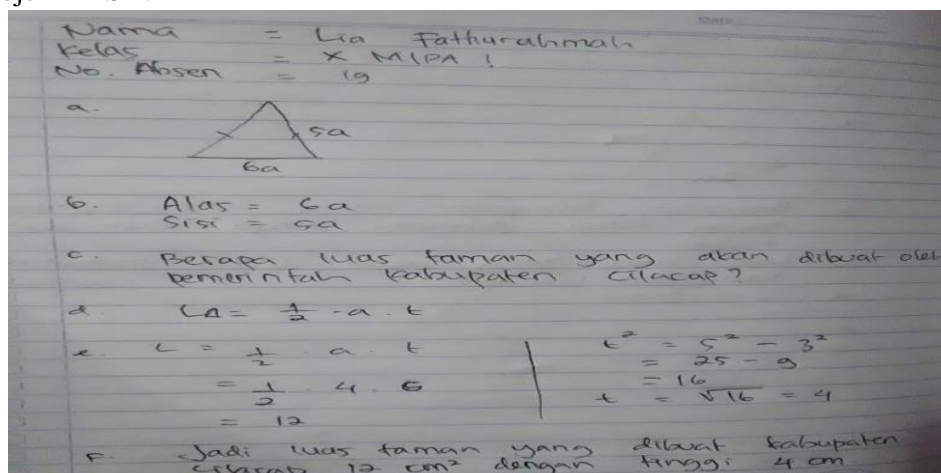 Nama = Lia Fathurahmah
Kelas = X MIPA 1
No. Absen = 19
a.
5a
6a
b. Alas = 6a
Sisi = 5a
c. Berapa luas taman yang akan dibuat oleh
pemerintah kabupaten Cilacap?
d. LΔ = 1/2 . a . t
e. L = 1/2 . a . t
= 1/2 . 4 . 6
= 12
t² = 5² - 3²
= 25 - 9
= 16
t = √16 = 4
F. Jadi luas taman yang dibuat kabupaten
Cilacap 12 cm² dengan tinggi 4 cm